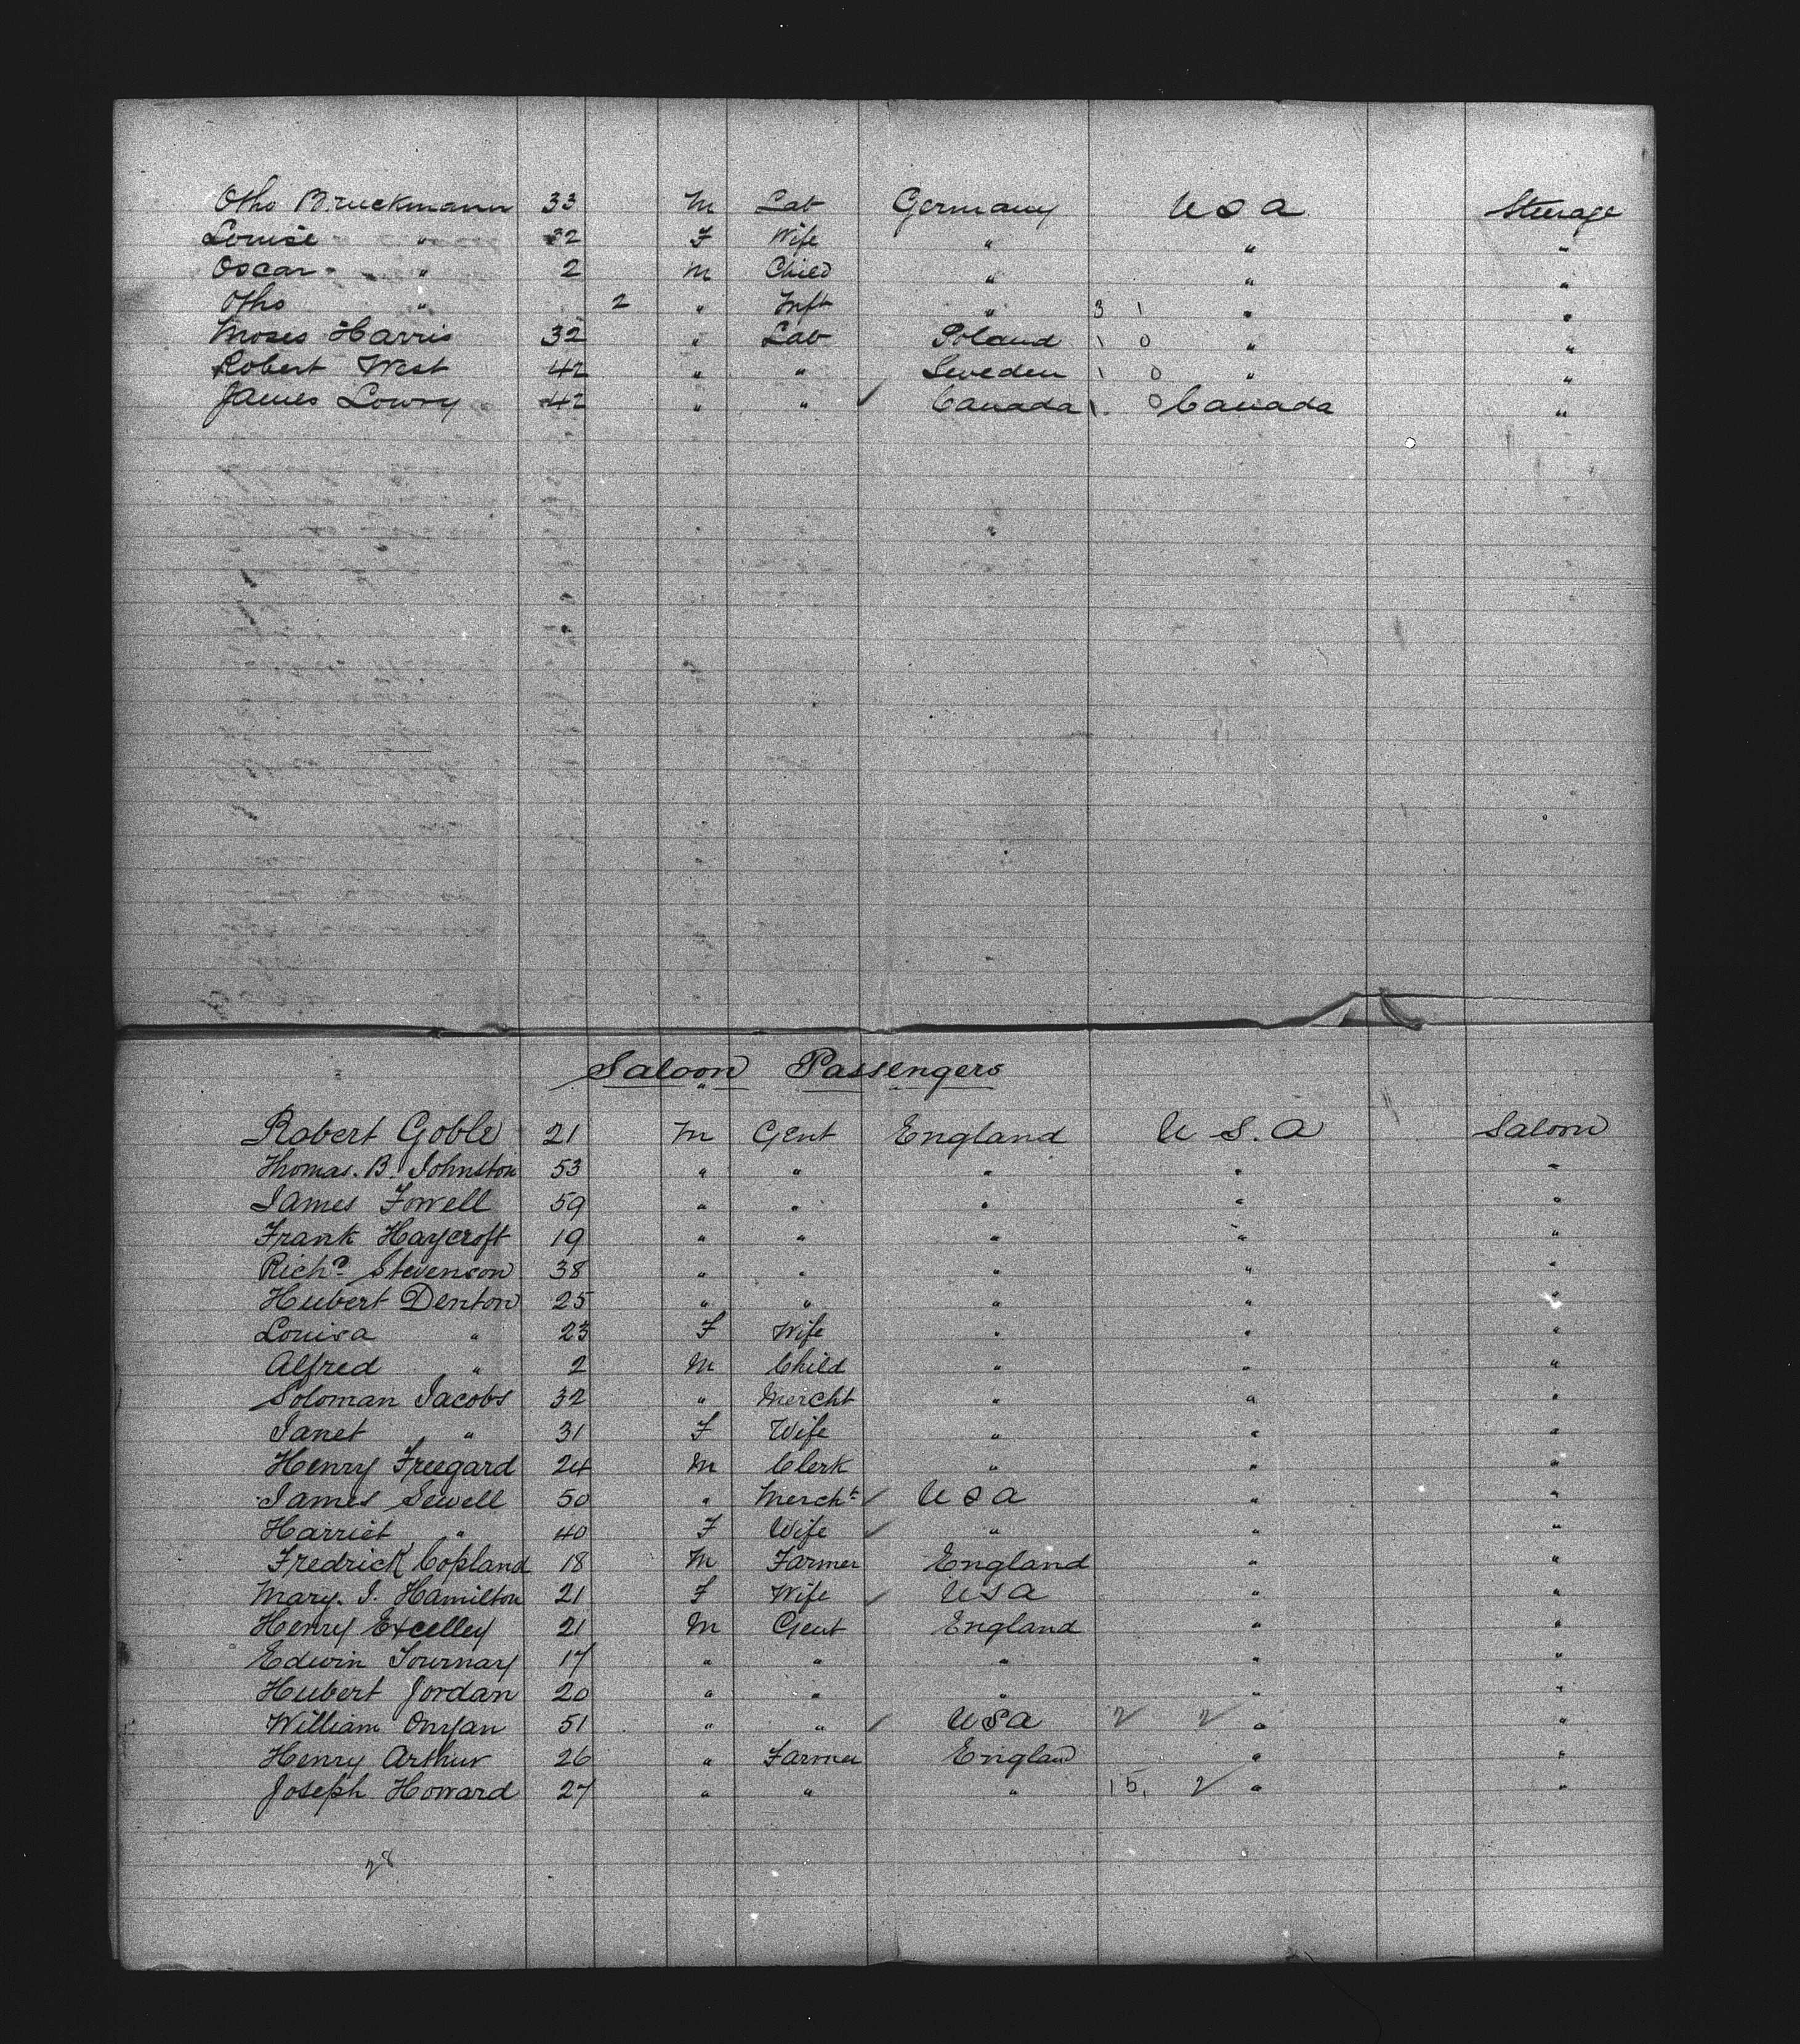 Otho Bruckmann 33 M Lab Germany U S A Steerage
Louise " 32 F Wife " " "
Oscar " 2 M Child " " "
Otho " 2 " Inft " 3 1 " "
Moses Harris 32 " Lab Poland 1 0 " "
Robert West 42 " " Sweden 1 0 " "
James Lowry 42 " " ✓ Canada 1. 0 Canada "
Saloon Passengers
Robert Goble 21 M Gent England U S. A Saloon
Thomas. B. Johnston 53 " " " " "
James Fowell 59 " " " " "
Frank Haycroft 19 " " " " "
Richd. Stevenson 38 " " " " "
Hubert Denton 25 " " " " "
Louisa " 23 F Wife " " "
Alfred " 2 M Child " " "
Soloman Jacobs 32 " Mercht " " "
Janet " 31 F Wife " " "
Henry Freegard 24 M Clerk " " "
James Sewell 50 " Mercht ✓ U S A " "
Harriet " 40 F Wife ✓ " " "
Fredrick Copland 18 M Farmer England " "
Mary. J. Hamilton 21 F Wife ✓ U S A " "
Henry Excelley 21 M Gent England " "
Edwin Tournay 17 " " " " "
Hubert Jordan 20 " " " " "
William Onyan 51 " " ✓ U S A 2 2 " "
Henry Arthur 26 " Farmer England " "
Joseph Howard 27 " " " 15. 2 " "
28